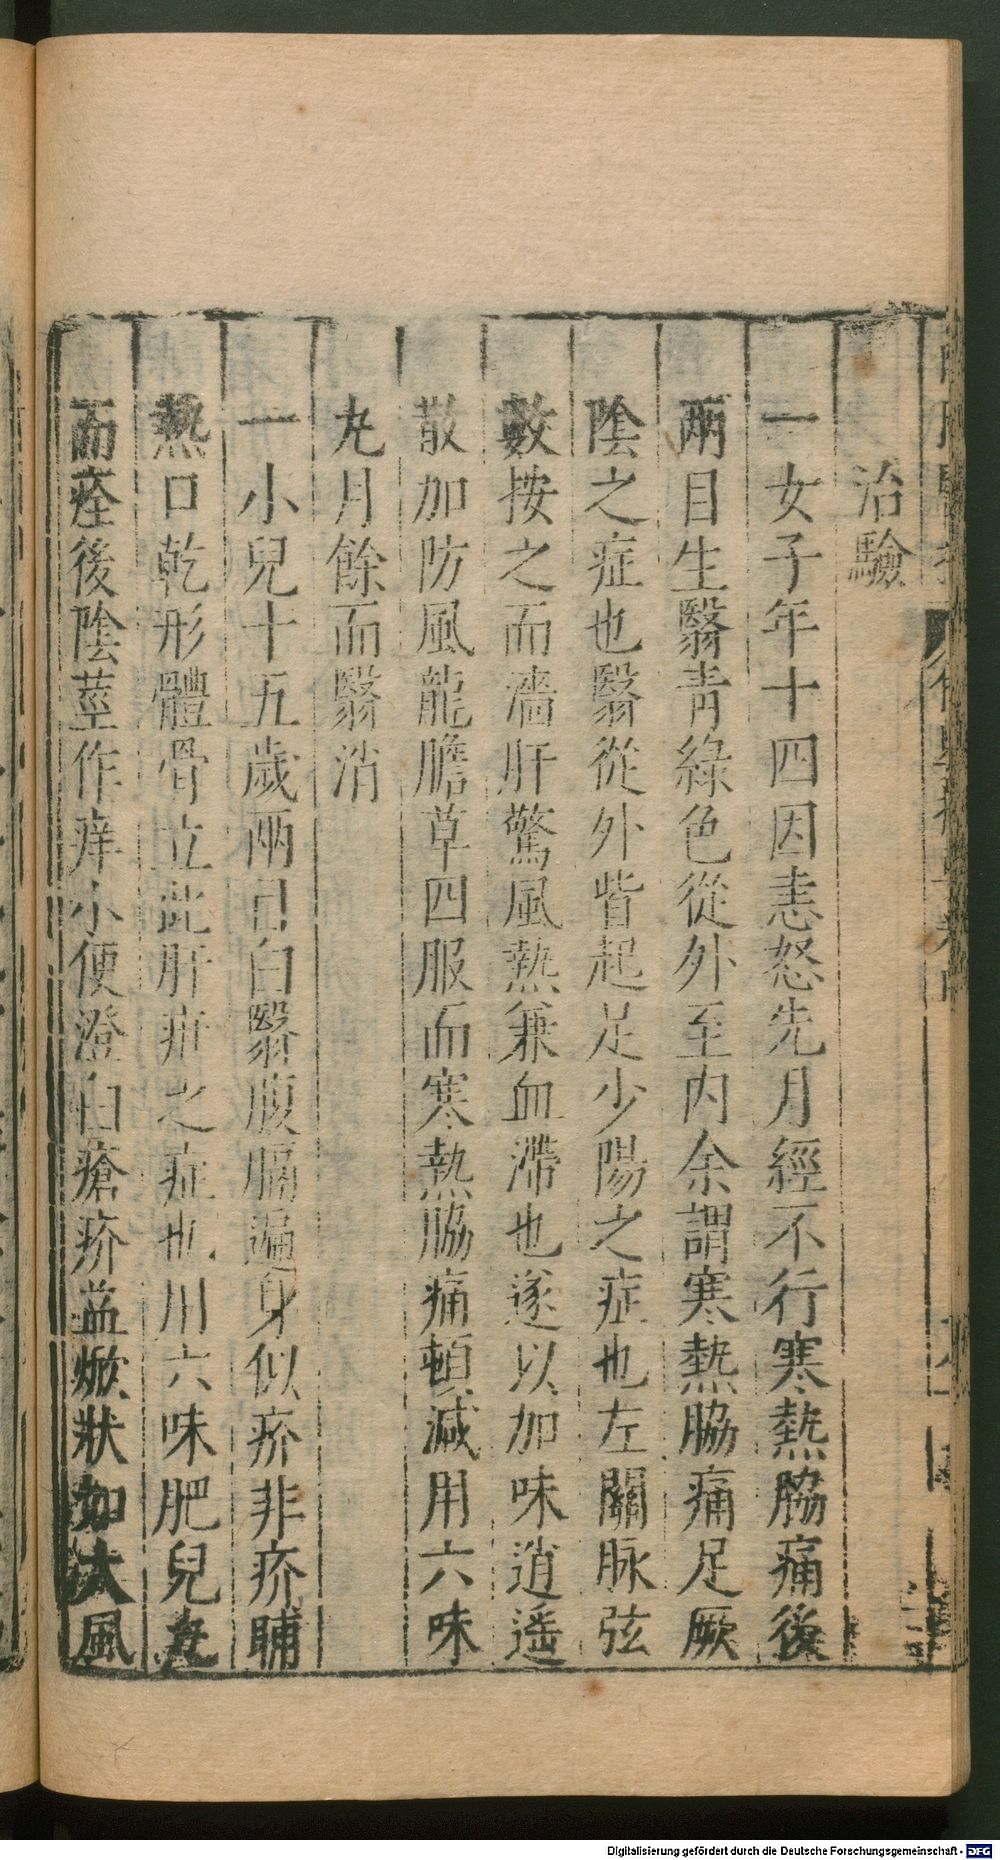 治驗
一女子年十四因恚怒先月經不行寒熱脇痛後
兩目生翳青綠色從外至内余謂寒熱脇痛足厥
陰之症也翳從外眥起足少陽之症也左關脉弦
數按之而濇肝驚風熱兼血滯也遂以加味逍遥
散加防風龍膽草四服而寒熱脇痛頓減用六味
丸月餘而翳消
一小兒十五歲兩目白翳腹膈遍身似疥非疥晡
熱口乾形體骨立此肝疳之症也用六味肥兒丸
而痊後陰莖作痒小便澄白瘡疥益焮狀如大風
Digitalisierung gefördert durch die Deutsche Forschungsgemeinschaft - DFG